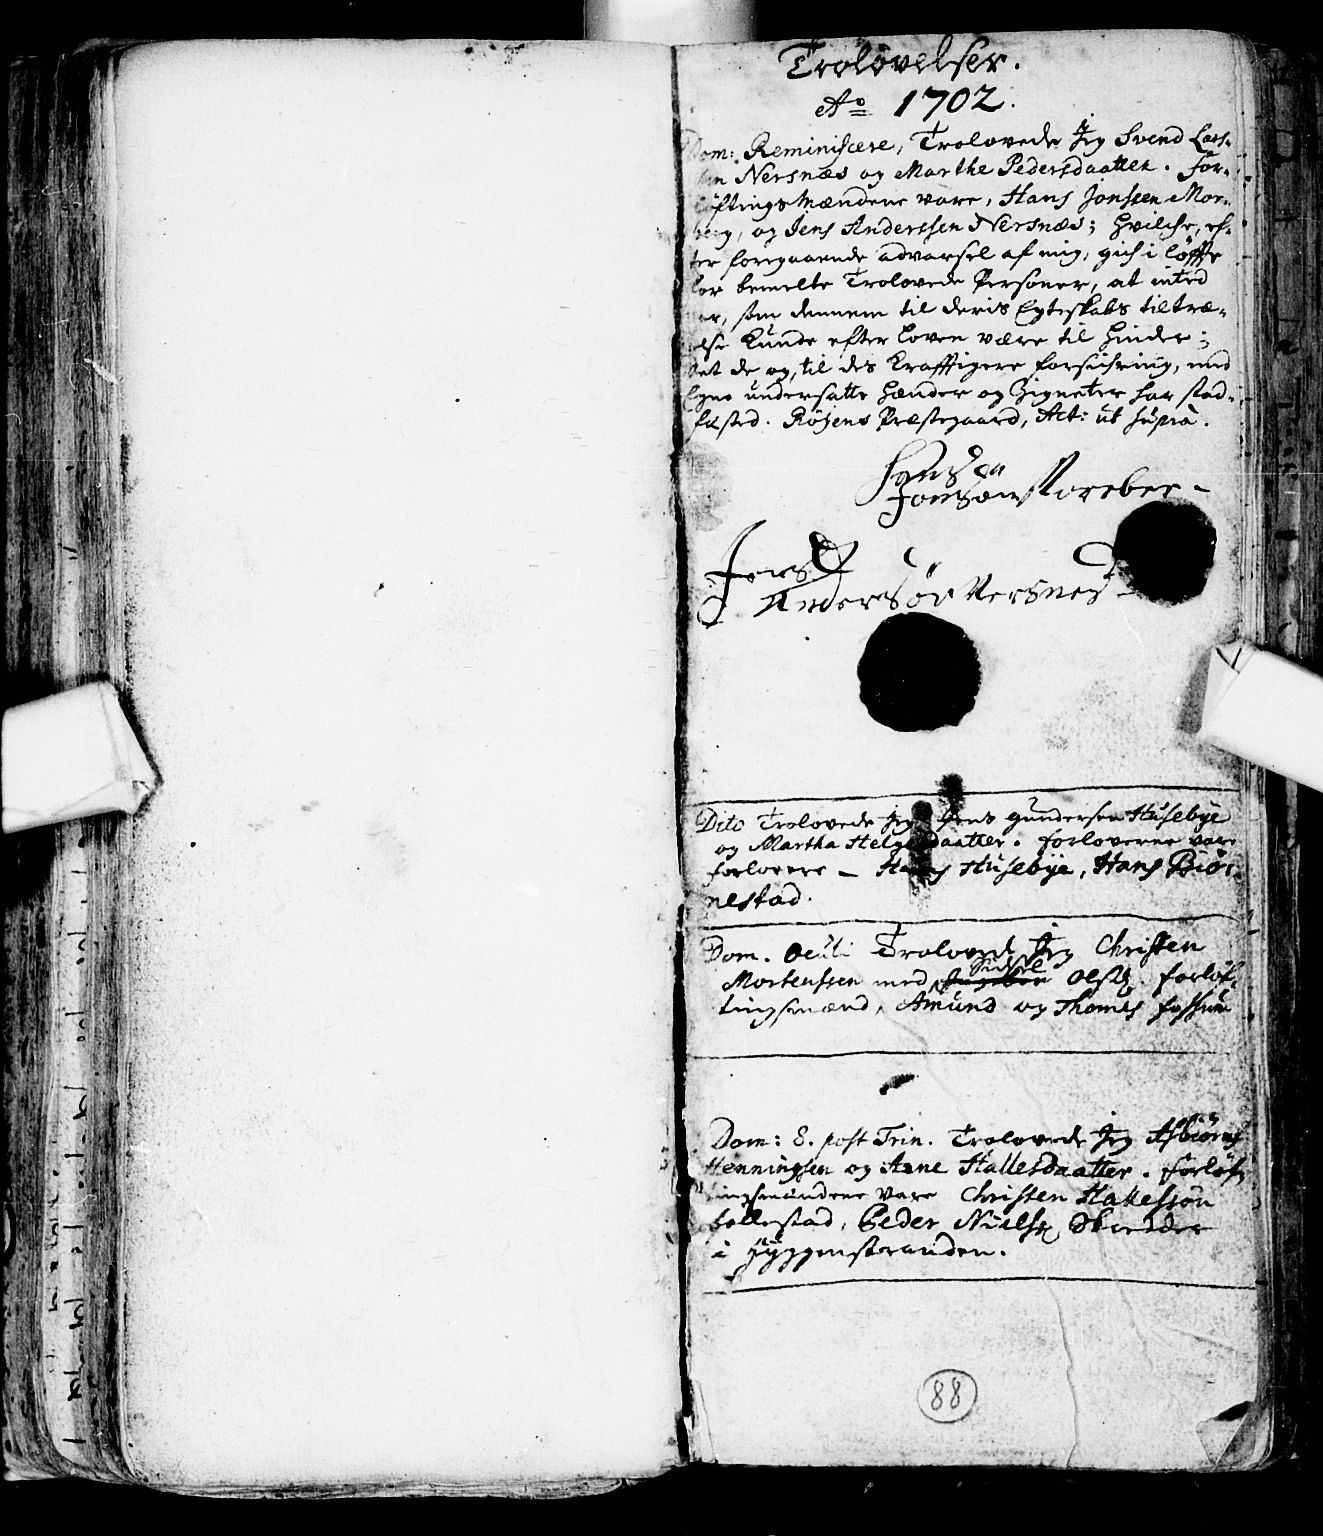 Trolovelser.
Ao 1702.
Dom: Reminiscere, Trolovede Jeg Svend Lars-
sen Nersnæs og Marthe Pedersdaatter. For-
løftings Mændene vare, Hans Jonssen Mor-
berg, og Jens Anderssen Nersnæs; hvilche, ef-
ter foregaaende advarsel af mig, gich i løffte
for bemelte Trolovede Personer, at inted
er, som dennem til deris Egteskabs tiltræ-
delse kunde efter Loven være til hinder;
Det de og, til des krafftigere forsichring, med
Egne undersatte hænder og Zigneter har stad-
fæsted. Røkens Præstegaard, Act: ut supra.
Hans
Jonsøn Moreber
Jens
Andersøn Nersnes
Dito Trolovede Jeg Jens Gundersen Husebye
og Martha Helgesdaatter. forloverne vare
forlovere - Hans Husebye, Hans Biør-
nestad.
Dom. Oculi Trolovede Jeg Christen
Mortenssen med Sidsel Olsd. forløf-
tingsmænd, Amund og Thomes fossum
Dom: 8. post Trin. Trolovede Jeg Asbiørn
Henningsen og Anne Hallesdaatter. forløf-
tingsmændene vare Christen Hallessøn
bøllestad, Peder Nielsen Skredder
i Hyggenstranden.
88